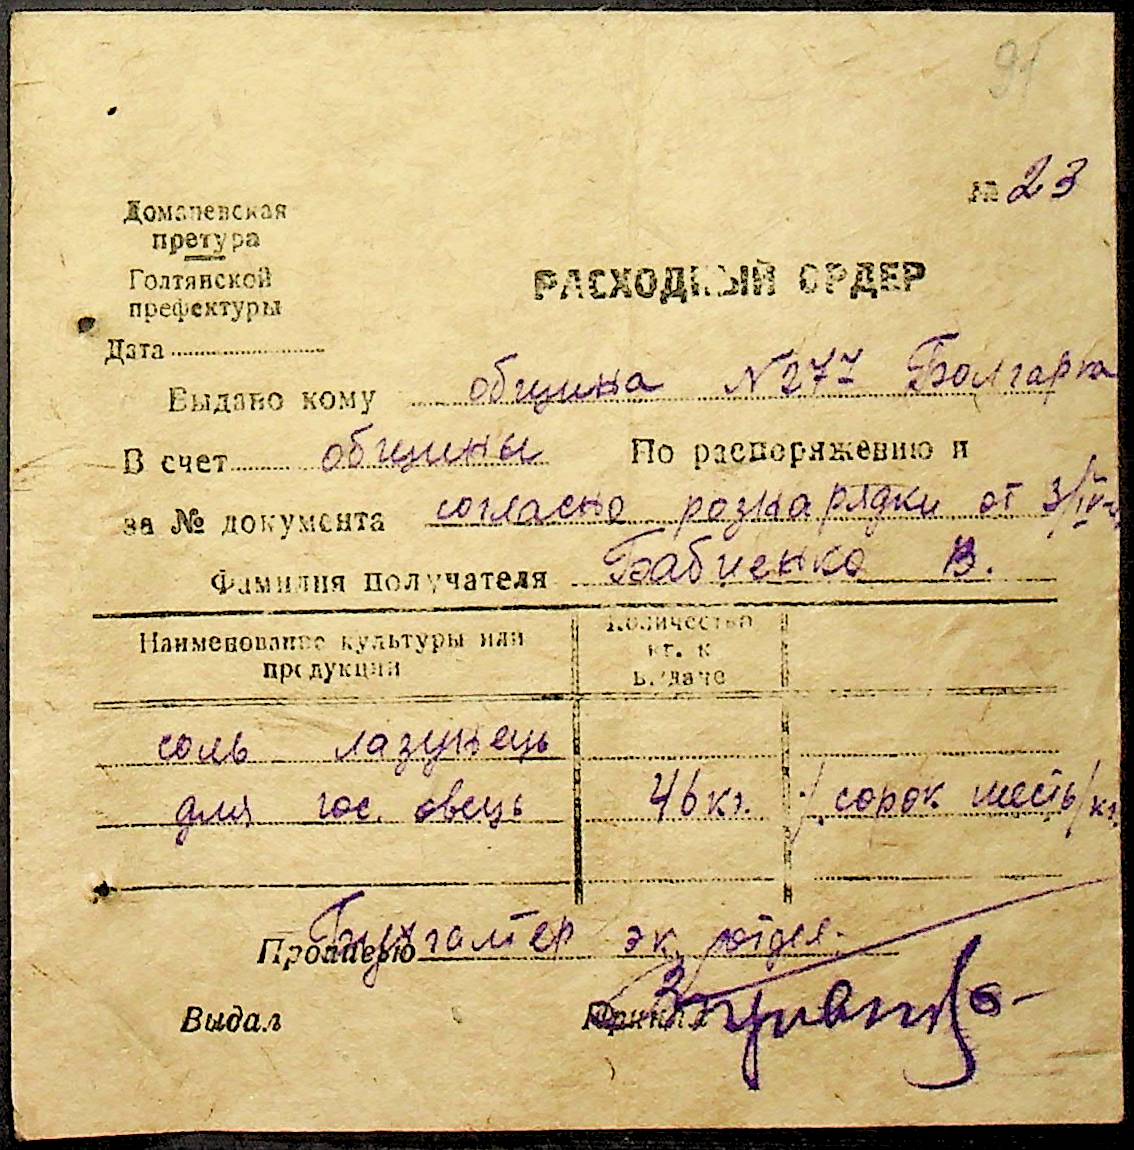 91
№ 23
Доманевская
претура
Голтянской
префектуры
РАСХОДНЫЙ ОРДЕР
Дата
Выдано кому община N277 Болгарка
В счет общины По распоряжению и
за № документа согласно рознарядки от 3/IV
Фамилия получателя Бабиенко В.
Наименование культуры или
продукции
Количество
кг. к
выдаче
соль лазунець
для гос. овець 46 кг. /сорок шесть/кг.
Бухгалтер эк. отдел.
Выдал Принял